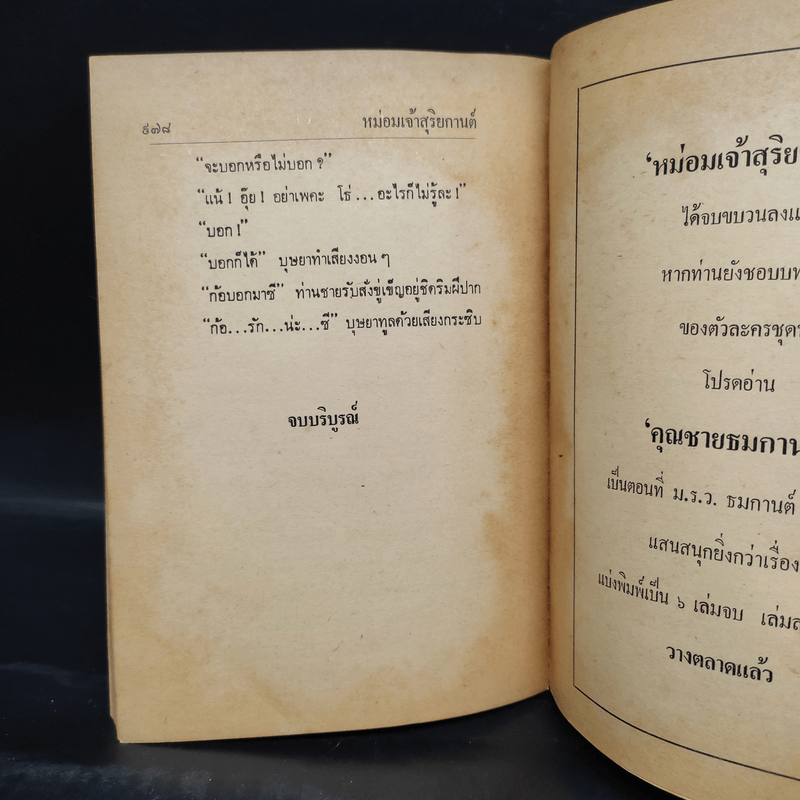 ๙๗๘
หม่อมเจ้าสุริยกานต์
“จะบอกหรือไม่บอก ?”
“แน้ ! อุ๊ย ! อย่าเพคะ โธ่ ... อะไรก็ไม่รู้ละ !”
“บอก !”
“บอกก็ได้” บุษยาทำเสียงงอน ๆ
“ก้อบอกมาซี” ท่านชายรับสั่งขู่เข็ญอยู่ชิดริมฝีปาก
“ก้อ...รัก...น่ะ...ซี” บุษยาทูลด้วยเสียงกระซิบ
จบบริบูรณ์
‘หม่อมเจ้าสุริย
ได้จบขบวนลงแ
หากท่านยังชอบบท
ของตัวละครชุด
โปรดอ่าน
‘คุณชายธมกาน
เป็นตอนที่ ม.ร.ว. ธมกานต์
แสนสนุกยิ่งกว่าเรื่อง
แบ่งพิมพ์เป็น ๖ เล่มจบ เล่มส
วางตลาดแล้ว